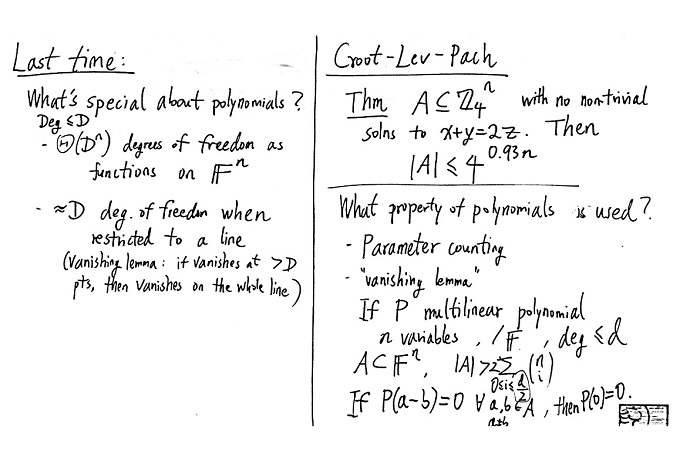 Last time:
What's special about polynomials?
Deg ≤D
- Θ(Dⁿ) degrees of freedom as
functions on 𝔽ⁿ
- ≈D deg. of freedom when
restricted to a line
(Vanishing lemma: if vanishes at >D
pts, then vanishes on the whole line)
Croot-Lev-Pach
Thm A⊆ℤ₄ⁿ with no nontrivial
solns to x+y=2z. Then
|A| ≤ 4^{0.93n}
What property of polynomials is used?
- Parameter counting
- "vanishing lemma"
If P multilinear polynomial
n variables, /𝔽, deg ≤d
A⊂𝔽ⁿ, |A|>2∑_{0≤i≤d/2} (n i)
If P(a-b)=0 ∀ a,b∈A, then P(0)=0.
a≠b